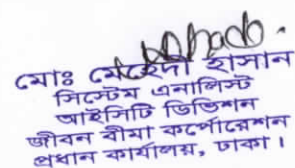 মোঃ মেহেদী হাসান
সিস্টেম এনালিস্ট
আইসিটি ডিভিশন
জীবন বীমা কর্পোরেশন
প্রধান কার্যালয়, ঢাকা।